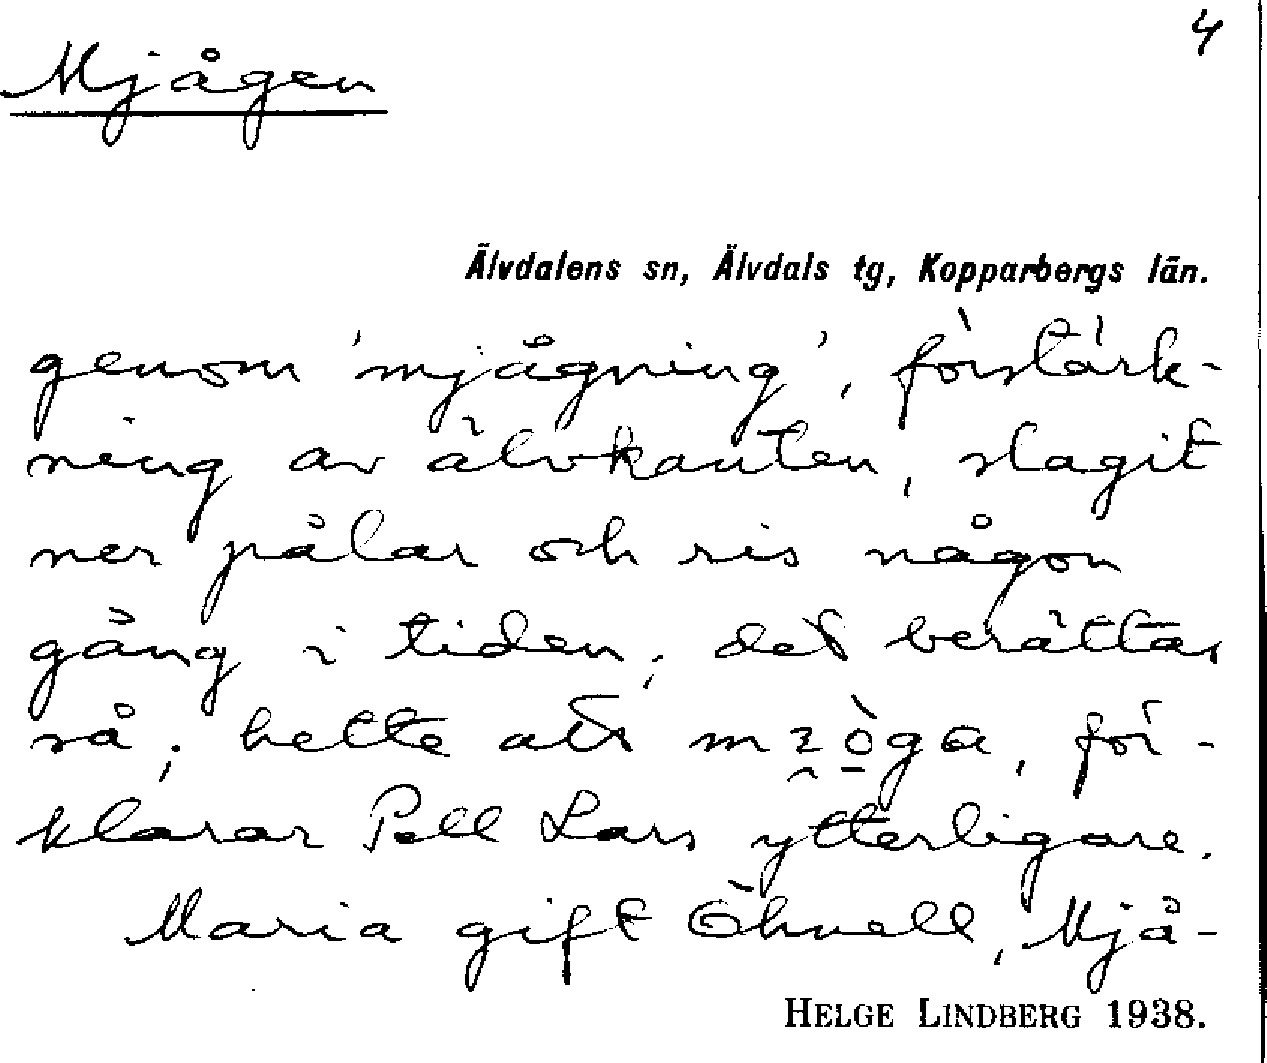 4
Mjågen
Älvdalens sn, Älvdals tg, Kopparbergs län.
genom 'mjågning', förstärk-
ning av älvkanten, slagit
ner pålar och ris någon
gång i tiden; det berättas
så; hette att
för-
klarar Pell Lars ytterligare.
Maria gift Öhnell, Mjå-
HELGE LINDBERG 1938.